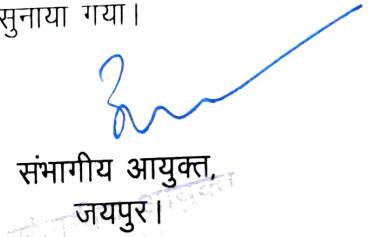 सुनाया गया।
संभागीय आयुक्त,
जयपुर।